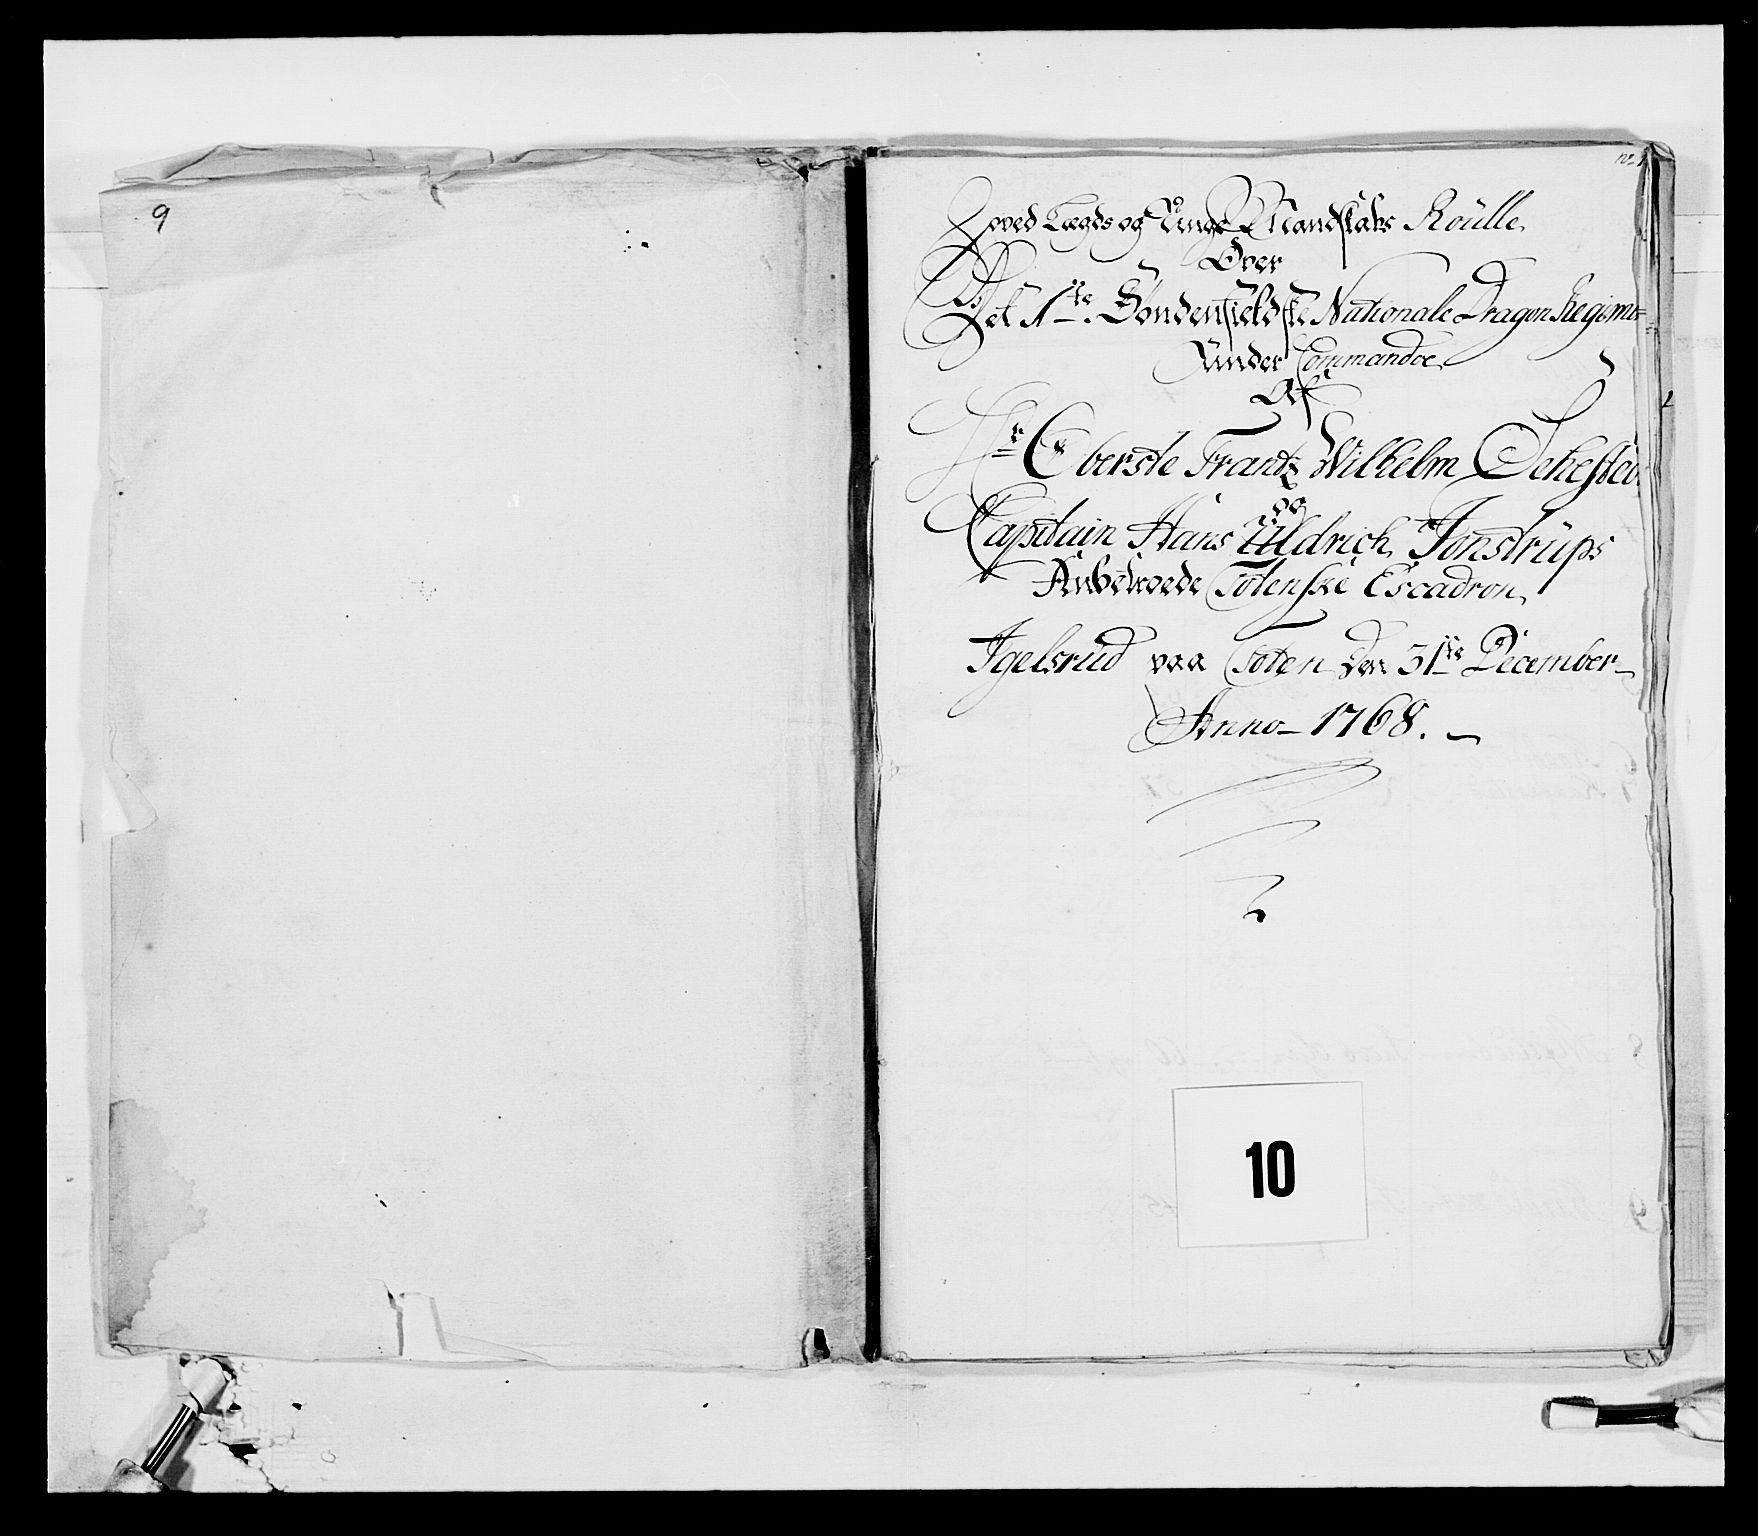 9
No 1
Hoved Lægds og Unge Mandskabs Roulle
Over
Det 1ste Søndenfieldske Nationale Dragon Regimt
Under Commandoe
Af
Hr Oberste Frantz Wilhelm Sehested
og
Capitain Hans Uldrich Jonstrups
Anbetroede Totenske Escadron
Igelsrud paa Toten den 31te December
Anno 1768.
10